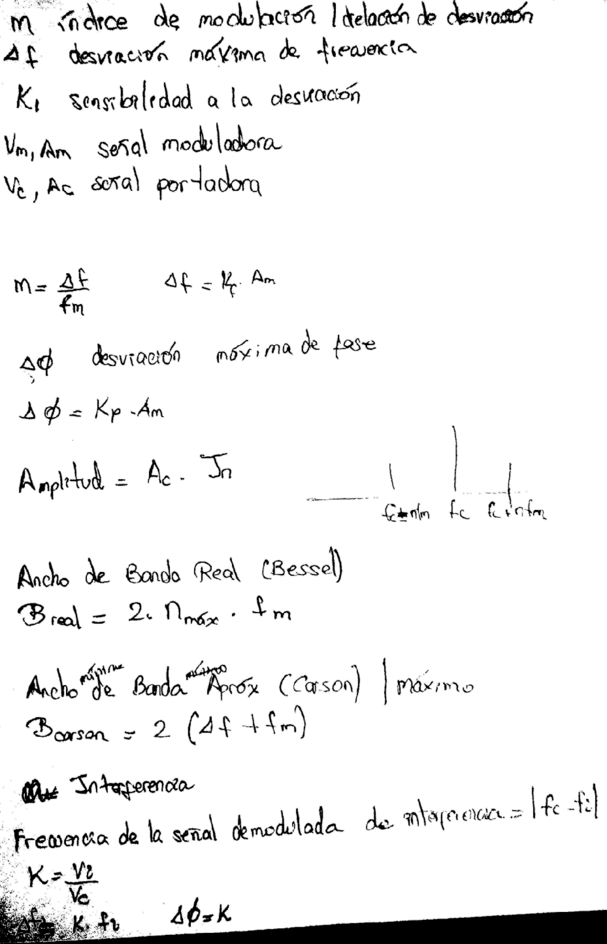 m índice de modulación / relación de desviación
Δf desviación máxima de frecuencia
K₁ sensibilidad a la desviación
Vm, Am señal moduladora
Vc, Ac señal portadora
m = Δf / fm    Δf = Kf · Am
Δϕ desviación máxima de fase
Δϕ = Kp · Am
Amplitud = Ac · Jn
fc fc+nfm
Ancho de Banda Real (Bessel)
Breal = 2 · nmáx · fm
Ancho de Banda Apróx (Carson) | máximo
Bcarson = 2 (Δf + fm)
Interferencia
Frecuencia de la señal demodulada de interferencia = |fc - fi|
K = Vi / Vc
K · fi    Δϕ = K